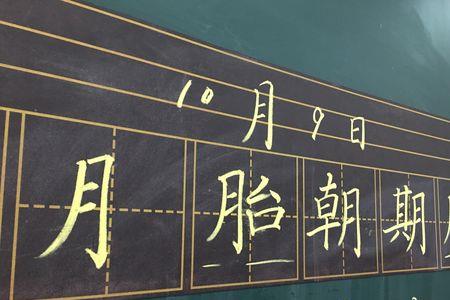 10月9日
月胎朝期